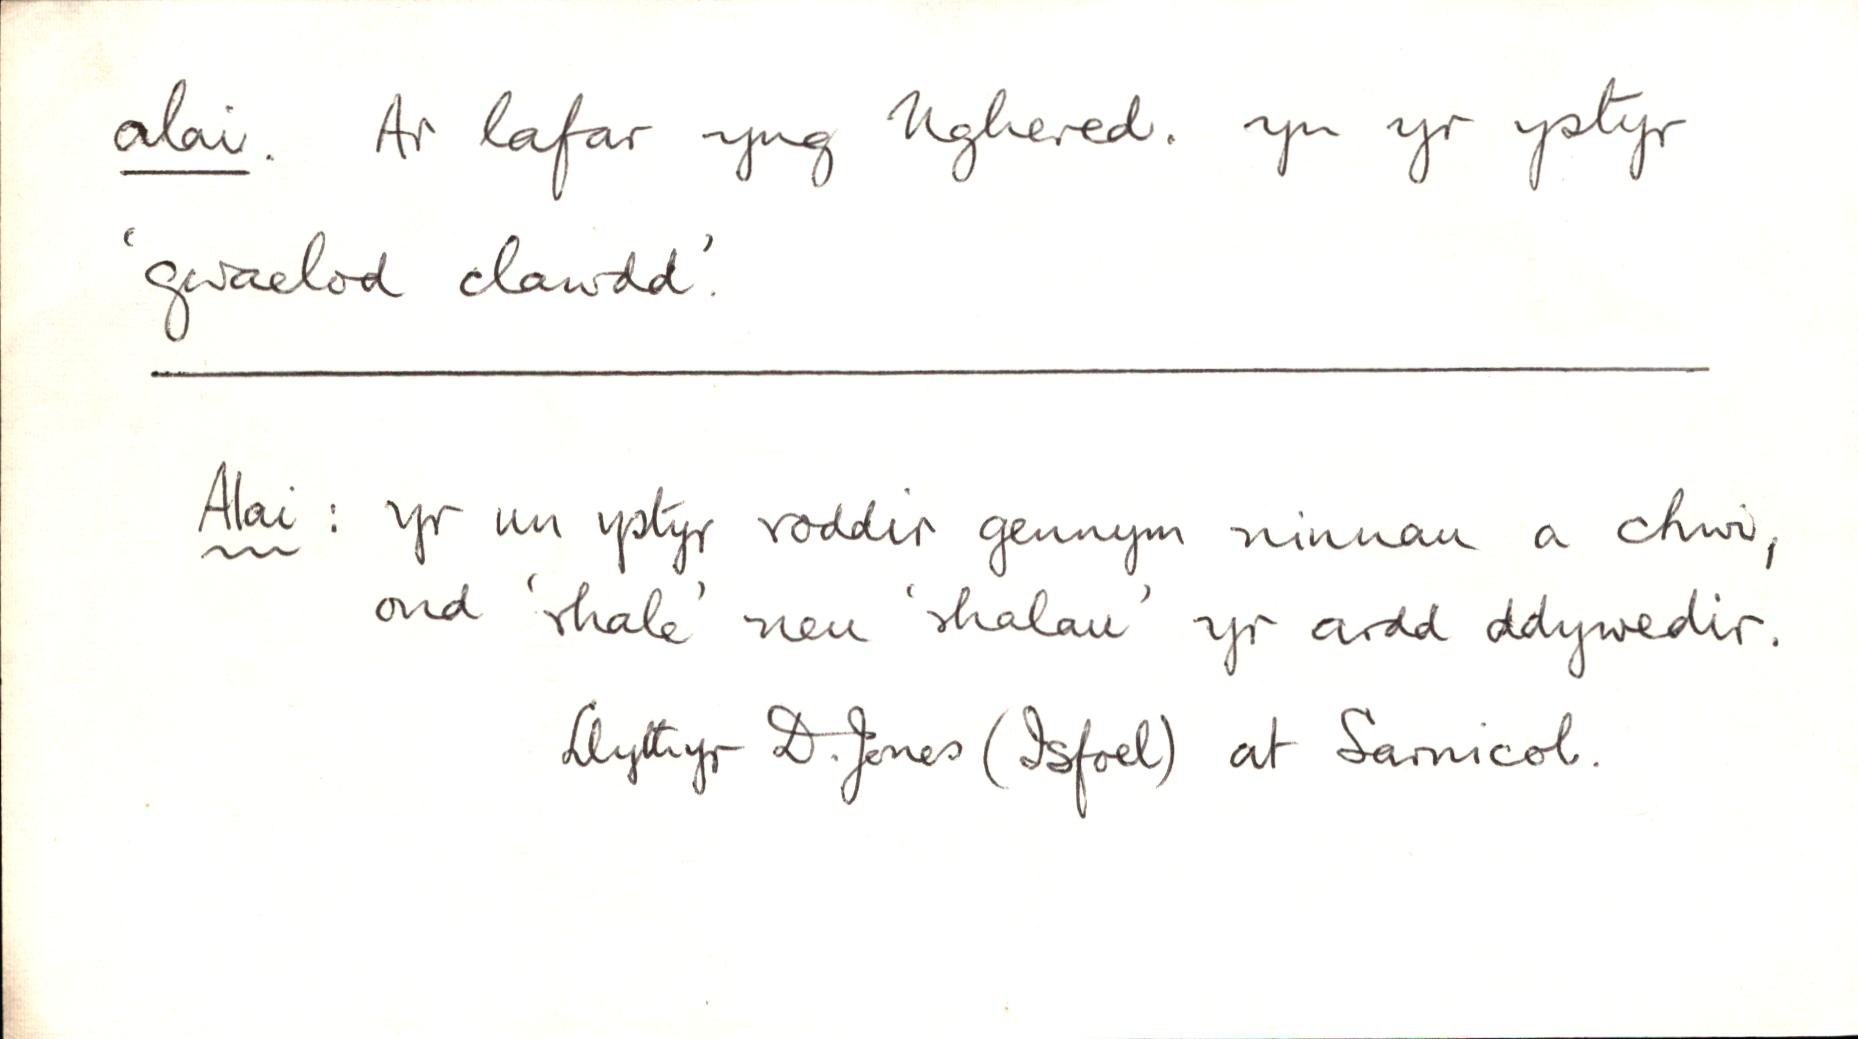 alai. Ar lafar yng Nghered. yn yr ystyr
‘gwaelod clawdd’.
Alai : yr un ystyr roddir gennym ninnau a chwi,
ond ‘rhale’ neu ‘rhalau’ yr ardd ddywedir.
Llythyr D. Jones (Isfoel) at Sarnicol.